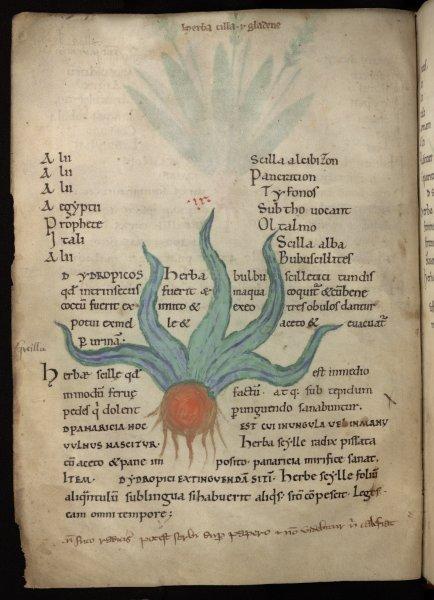 herba cilla · y gladene
Alii Scilla alcibizon
Alii Pancration
Alii Tyfonos
Aegyptii Subtho vocant
Prophete Oltalmo
Itali Scilla alba
Alii Bubuscillites
D YDROPICOS Herba bulbu scilletici tundis
qd intrinsecus fuerit & inaqua coquit̄ & cū bene
coctū fuerit ex imito & exeo tres obulos dantur
potui exmel le & aceto & evacuat̄
Herbæ scille qd est inmedio
inmodū feruꝫ factū. atq; sub tepidum
pedes q dolent punguendo sanabuntur.
D PANARICIA HOC EST CUI INUNGULA
VULNUS NASCITUR. Herba scylle radix pissata
cū aceto & pane in posito panaricia mirifice sanat.
ITEM. D YDROPICI EXTINGUENDĀ SITĪ. Herbe scylle foliū
sublingua sihabuerit sitī cōpescit. Legis
eam omni tempore;